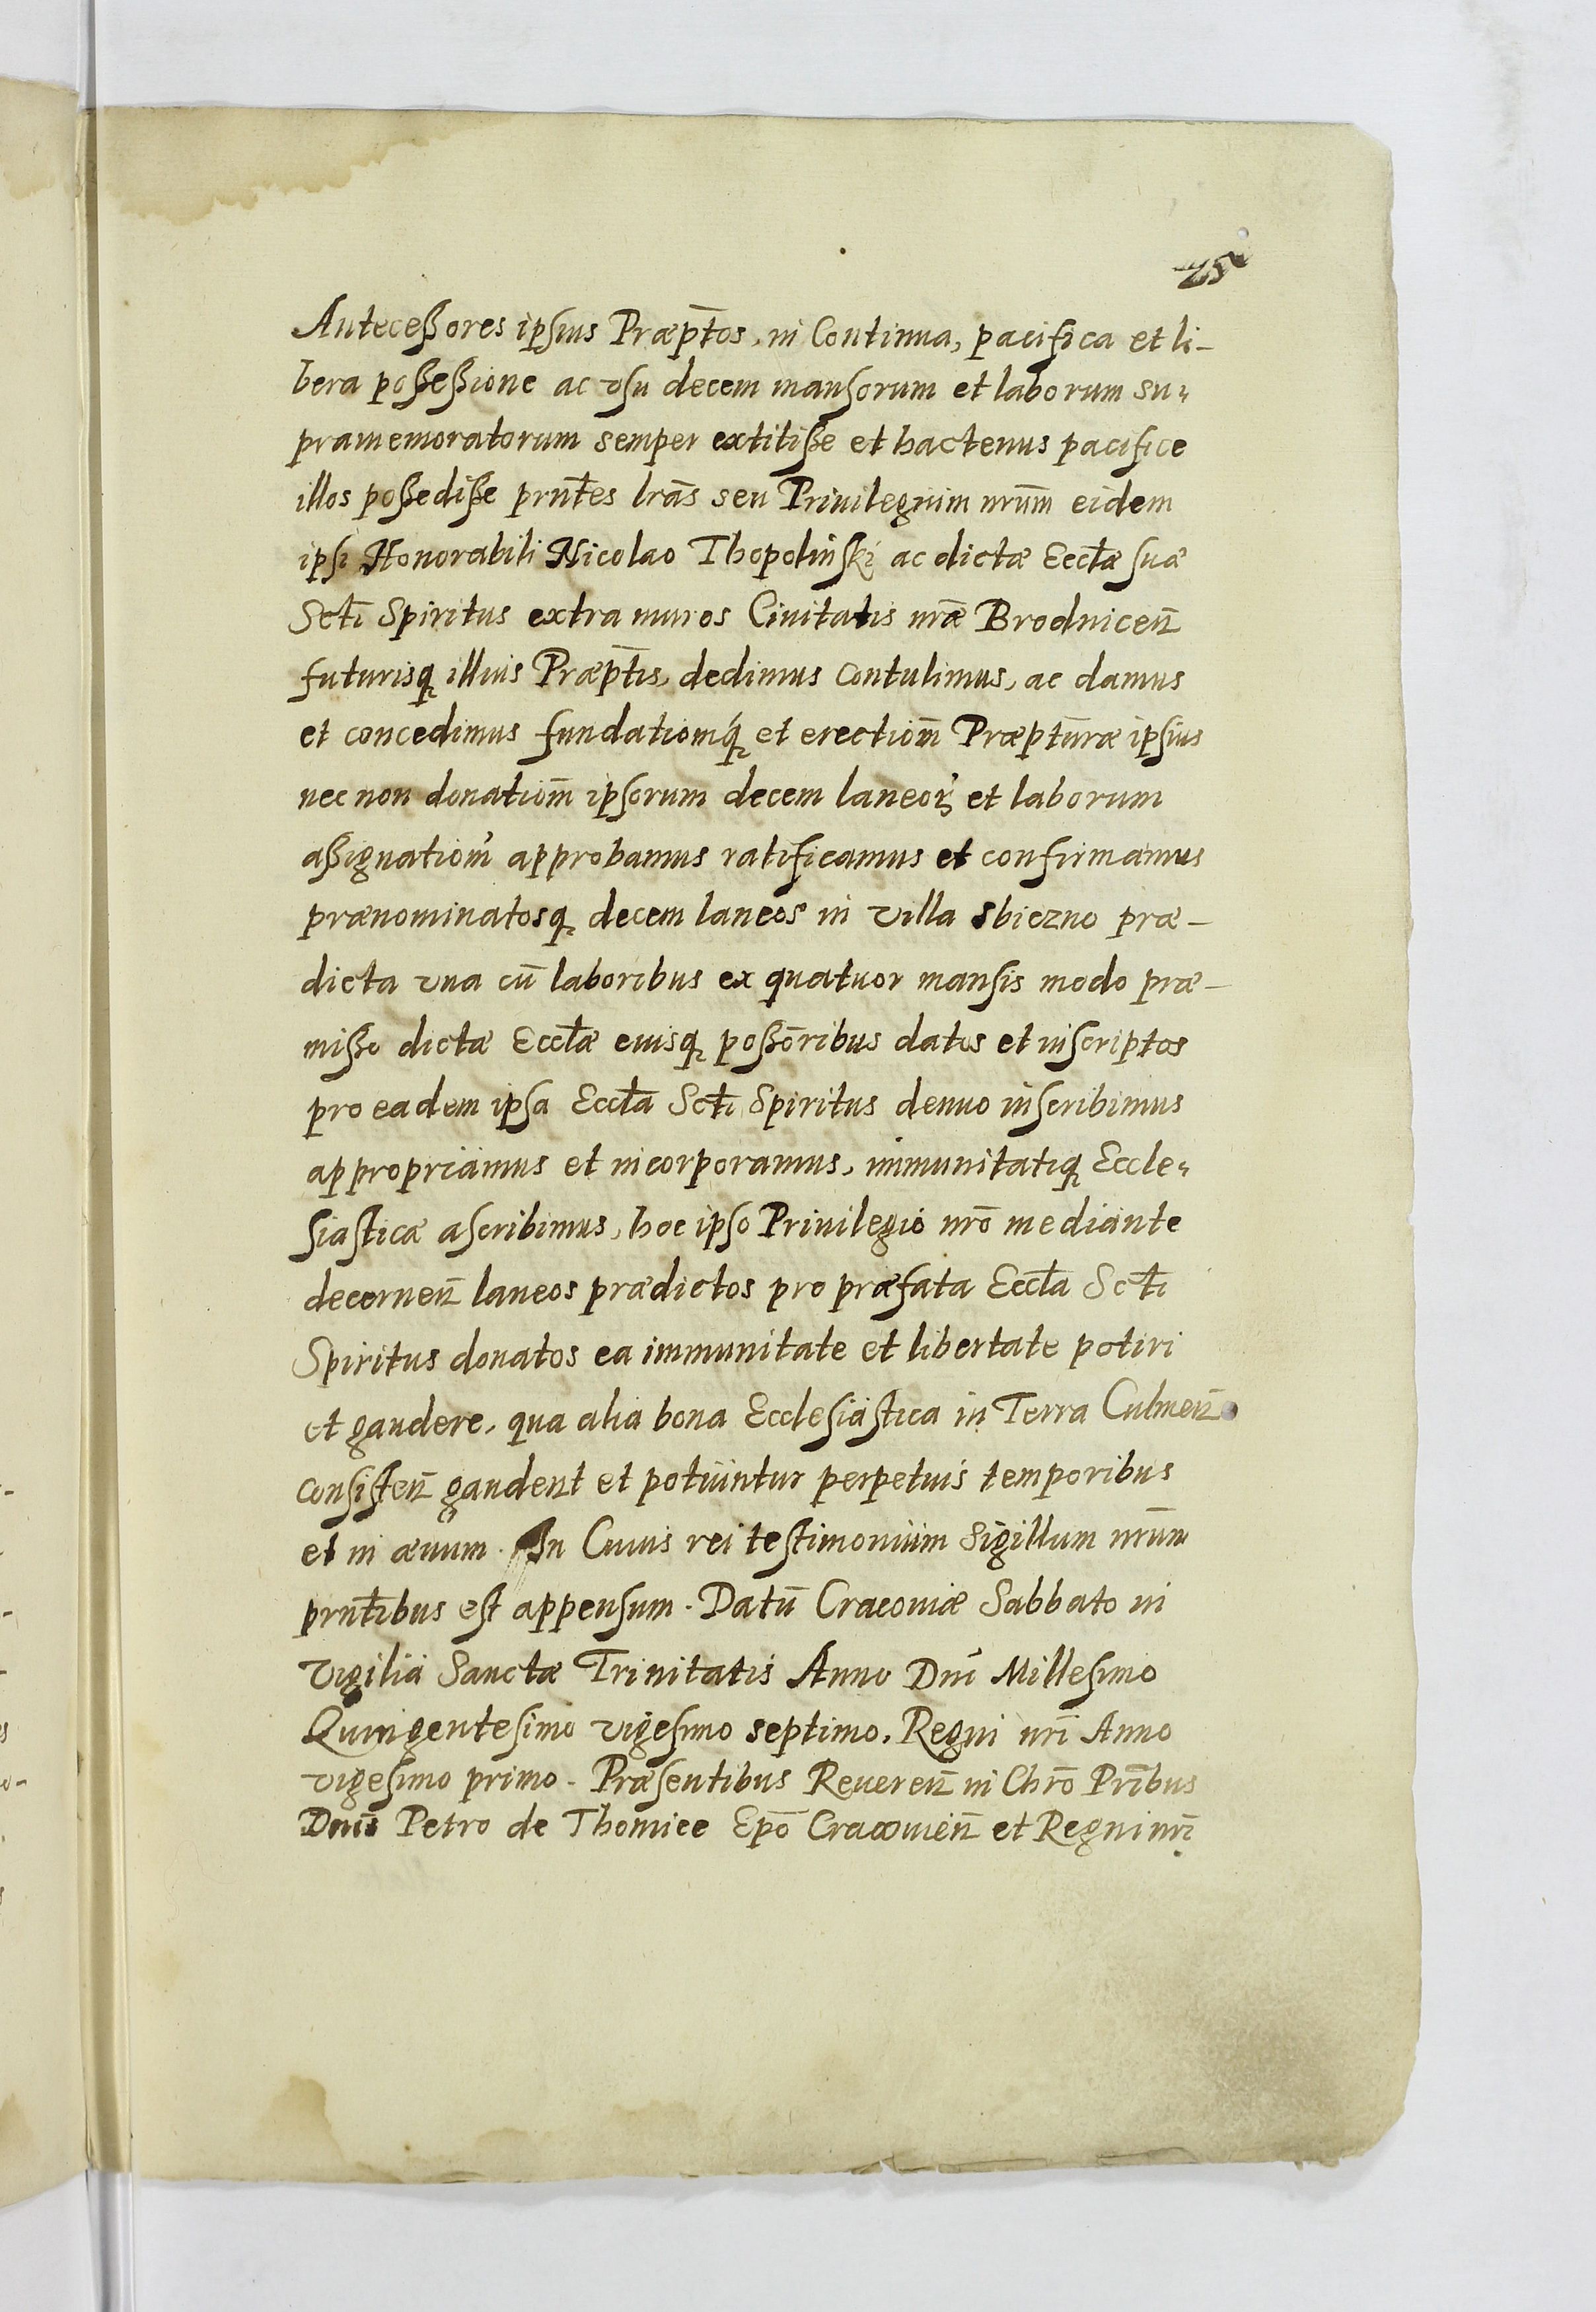 Antecessores ipsius Præpt̄os, in Continua, pacifica et li-
bera possessione ac vsu decem mansorum et laborum su-
pramemoratorum semper extitisse et hactenus pacifice
illos possedisse prnt̄es lrās seu Priuilegium nrūm eidem
ipsi Honorabili Nicolao Thopolinski ac dictæ Ecclǣ suæ
Sctī Spiritus extra muros Ciuitatis nrǣ Brodnicen̄
futurisq illius Præpt̄is, dedimus contulimus, ac damus
et concedimus fundatiom̄q et erectiom̄ Præpt̄uræ ipsius
nec non donatiom̄ ipsorum decem laneor̄ et laborum
assignatiom̄ approbamus ratificamus et confirmamus
prænominatosq decem laneos in villa Sbiezno præ-
dicta vna cū laboribus ex quatuor mansis modo præ-
misso dictæ Ecclǣ eiusq possōribus datos et inscriptos
pro eadem ipsa Ecclā Sctī Spiritus denuo inscribimus
appropriamus et incorporamus, immunitatiq Eccle-
siasticæ ascribimus, hoc ipso Priuilegio nrō mediante
decernen̄ laneos prædictos pro præfata Ecclā Sctī
Spiritus donatos ea immunitate et libertate potiri
et gaudere, qua alia bona Ecclesiastica in Terra Culmen̄
consisten̄ gaudent et potiuntur perpetuis temporibus
et in æuum. In Cuius rei testimonium Sigillum nrūm
prnt̄ibus est appensum. Datū Cracouiæ Sabbato in
vigilia Sanctæ Trinitatis Anno Dnī Millesimo
Quingentesimo vigesimo septimo. Regni nrī Anno
vigesimo primo. Præsentibus Reueren̄ in Chrō Prībus
Dnīs Petro de Thomice Epō Cracouien̄ et Regni nrī